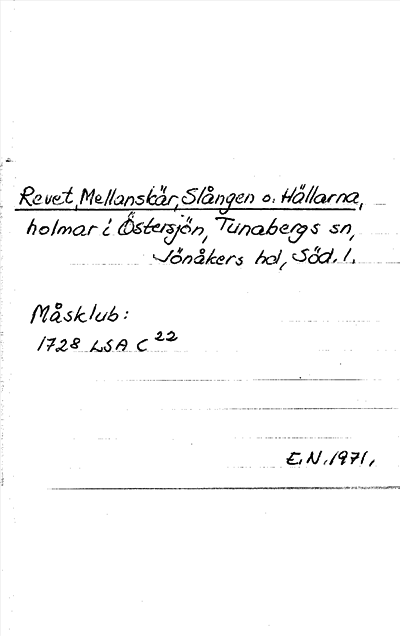 Revet, Mellanskär, Slången o. Hällarna,
holmar i Östersjön, Tunabergs sn,
Jönåkers hd, Söd. l.
Måsklub:
1728 LSA C 22
E.N. 1971,